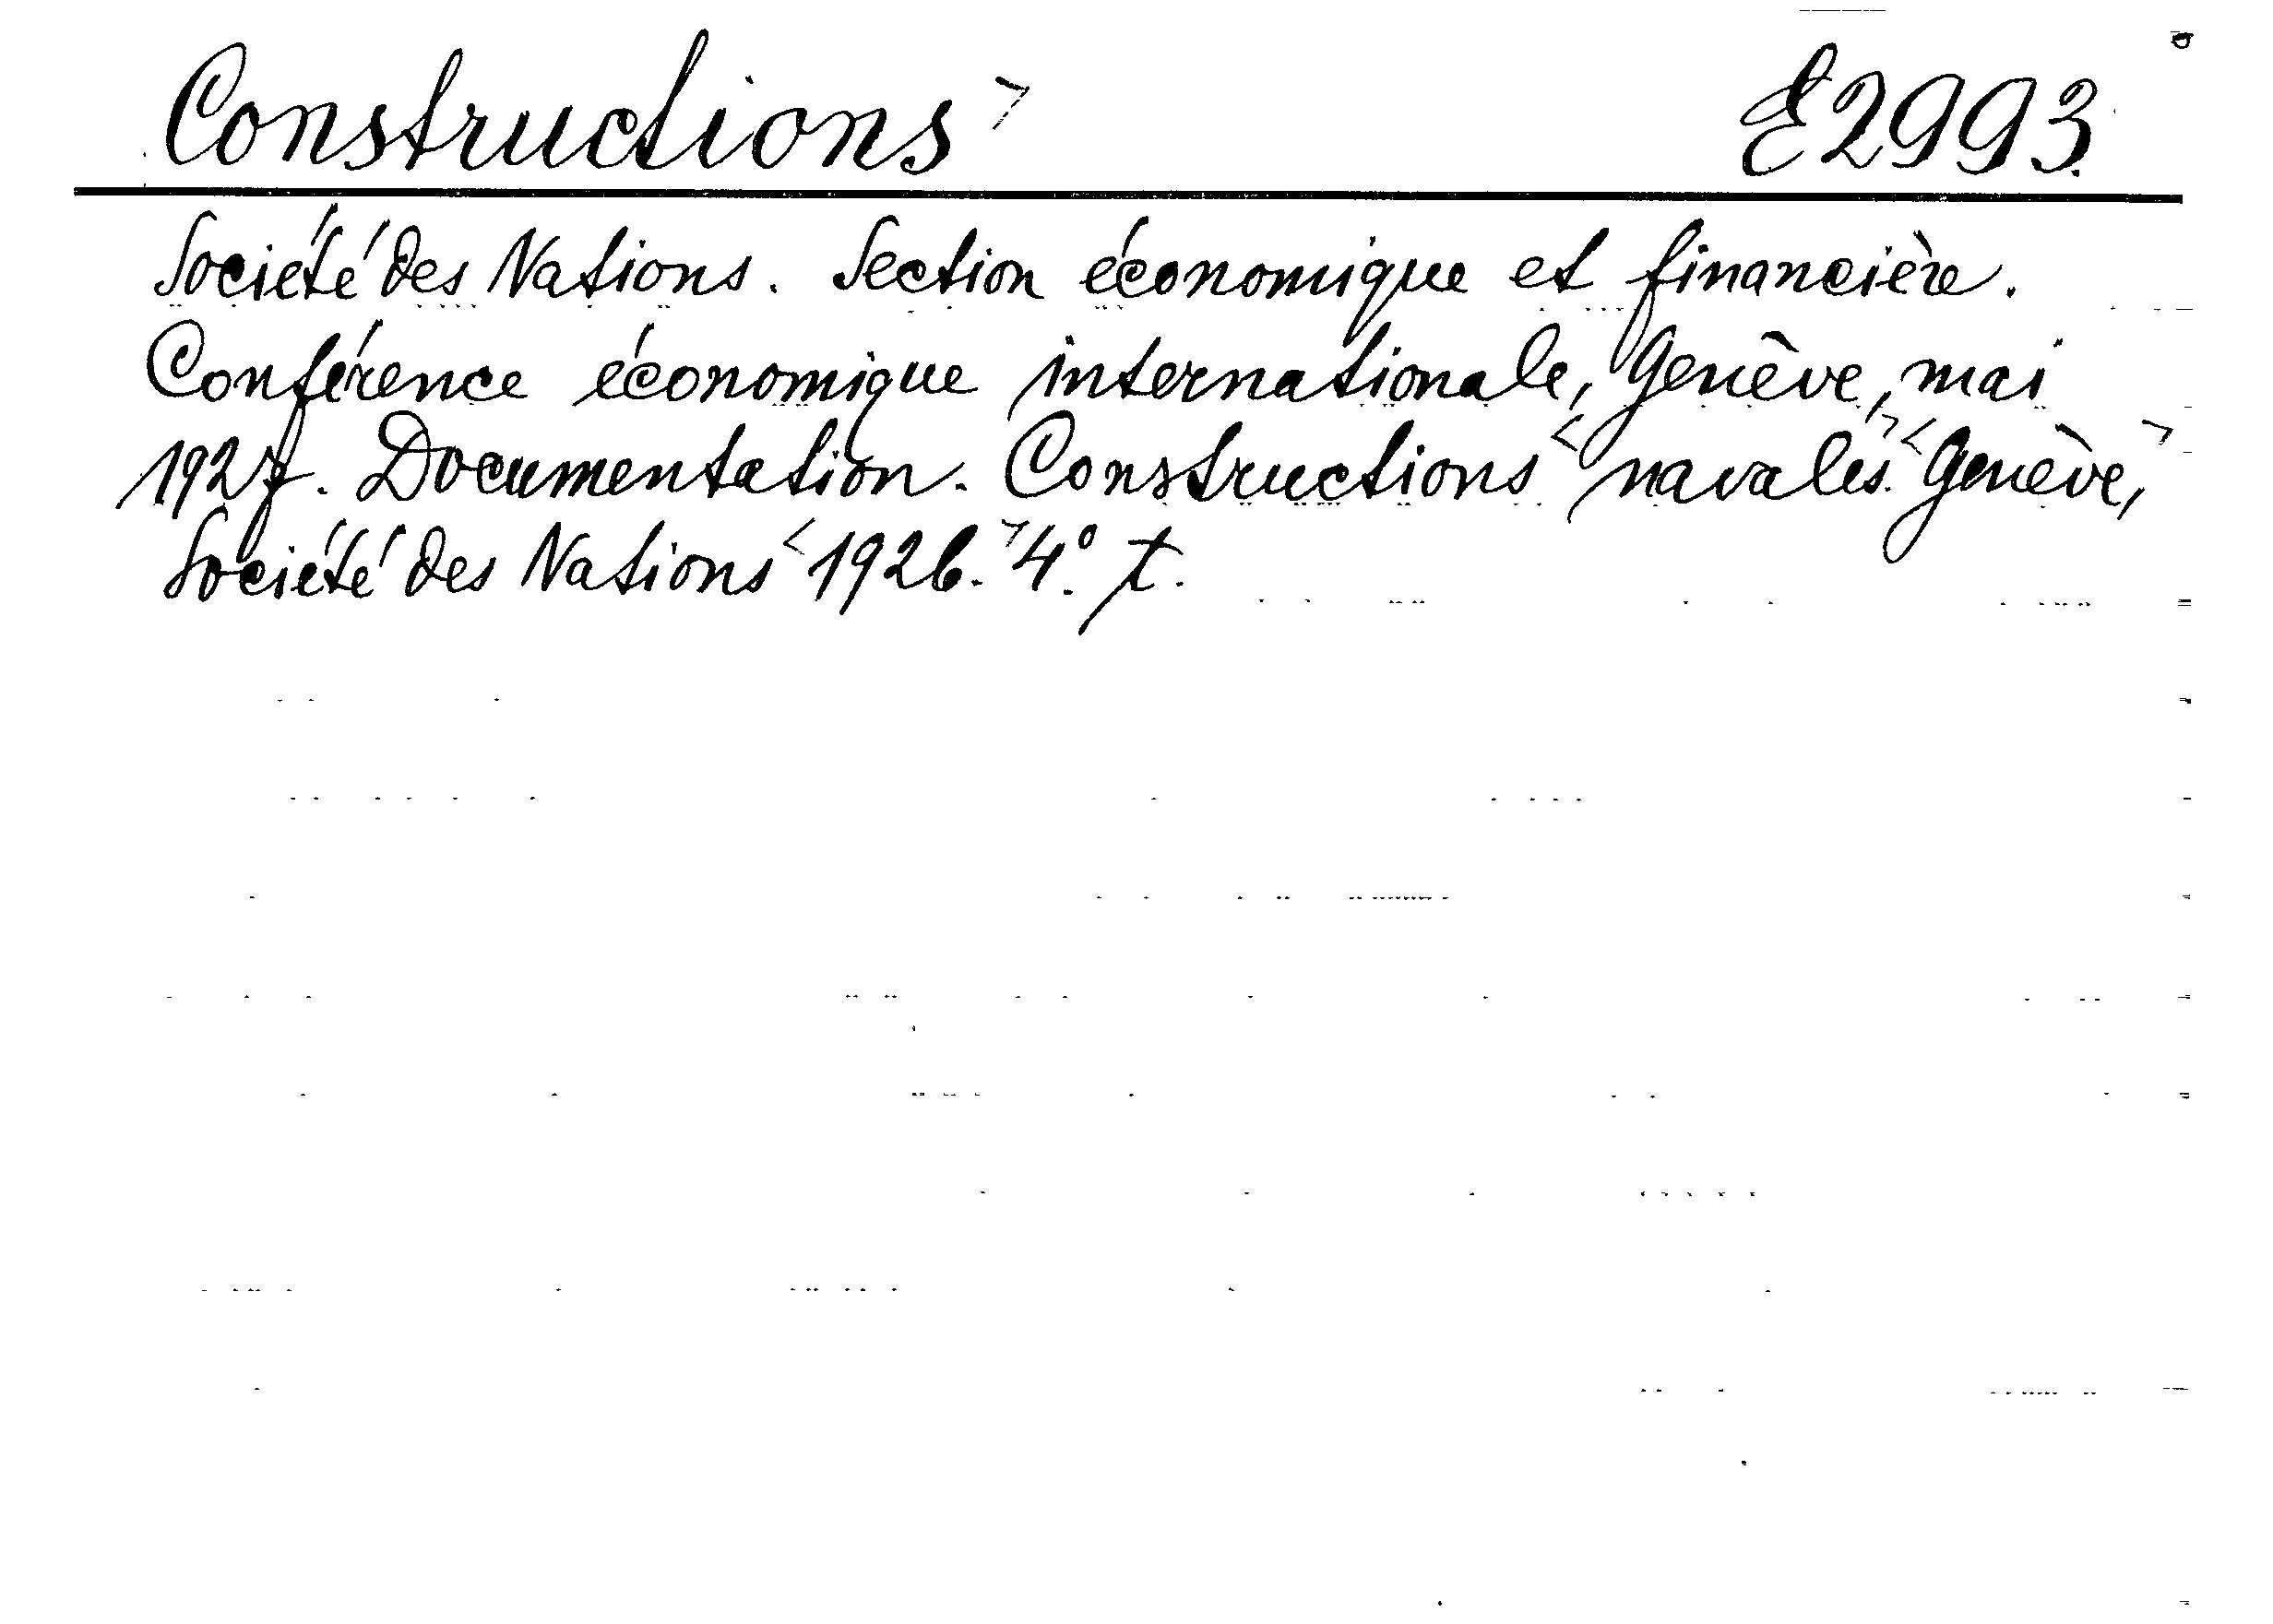 Constructions E2993.
Société des Nations. Section économique et financière.
Conférence économique internationale, Genève, mai
1927. Documentation. Constructions navales. Genève,
Société des Nations 1926. 4°. t.